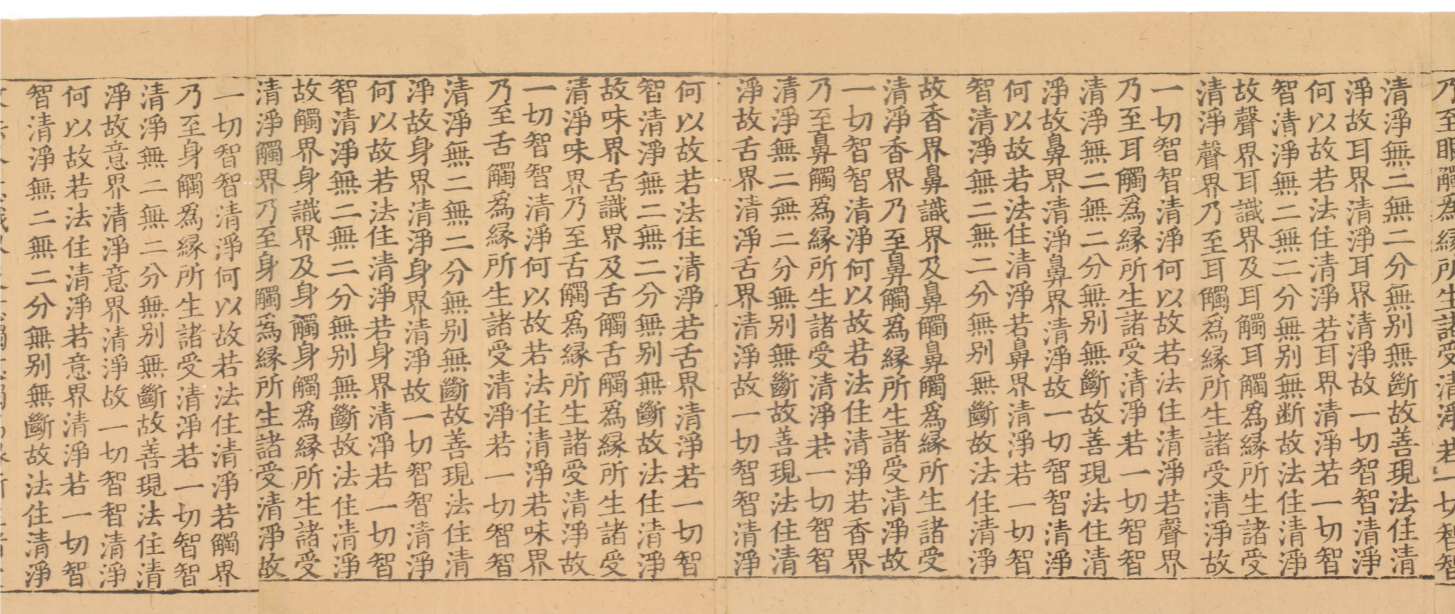 乃至眼觸為緣所生諸受清淨若一切智智
清淨無二無二分無別無斷故善現法住清
淨故耳界清淨耳界清淨故一切智智清淨
何以故若法住清淨若耳界清淨若一切智
智清淨無二無二分無別無断故法住清淨
故聲界耳識界及耳觸耳觸為緣所生諸受
清淨聲界乃至耳觸為緣所生諸受清淨故
一切智智清淨何以故若法住清淨若聲界
乃至耳觸為緣所生諸受清淨若一切智智
清淨無二無二分無別無斷故善現法住清
淨故鼻界清淨鼻界清淨故一切智智清淨
何以故若法住清淨若鼻界清淨若一切智
智清淨無二無二分無別無斷故法住清淨
故香界鼻識界及鼻觸鼻觸為緣所生諸受
清淨香界乃至鼻觸為緣所生諸受清淨故
一切智智清淨何以故若法住清淨若香界
乃至鼻觸為緣所生諸受清淨若一切智智
清淨無二無二分無別無斷故善現法住清
淨故舌界清淨舌界清淨故一切智智清淨
何以故若法住清淨若舌界清淨若一切智
智清淨無二無二分無別無斷故法住清淨
故味界舌識界及舌觸舌觸為緣所生諸受
清淨味界乃至舌觸為緣所生諸受清淨故
一切智智清淨何以故若法住清淨若味界
乃至舌觸為緣所生諸受清淨若一切智智
清淨無二無二分無別無斷故善現法住清
淨故身界清淨身界清淨故一切智智清淨
何以故若法住清淨若身界清淨若一切智
智清淨無二無二分無別無斷故法住清淨
故觸界身識界及身觸身觸為緣所生諸受
清淨觸界乃至身觸為緣所生諸受清淨故
一切智智清淨何以故若法住清淨若觸界
乃至身觸為緣所生諸受清淨若一切智智
清淨無二無二分無別無斷故善現法住清
淨故意界清淨意界清淨故一切智智清淨
何以故若法住清淨若意界清淨若一切智
智清淨無二無二分無別無斷故法住清淨